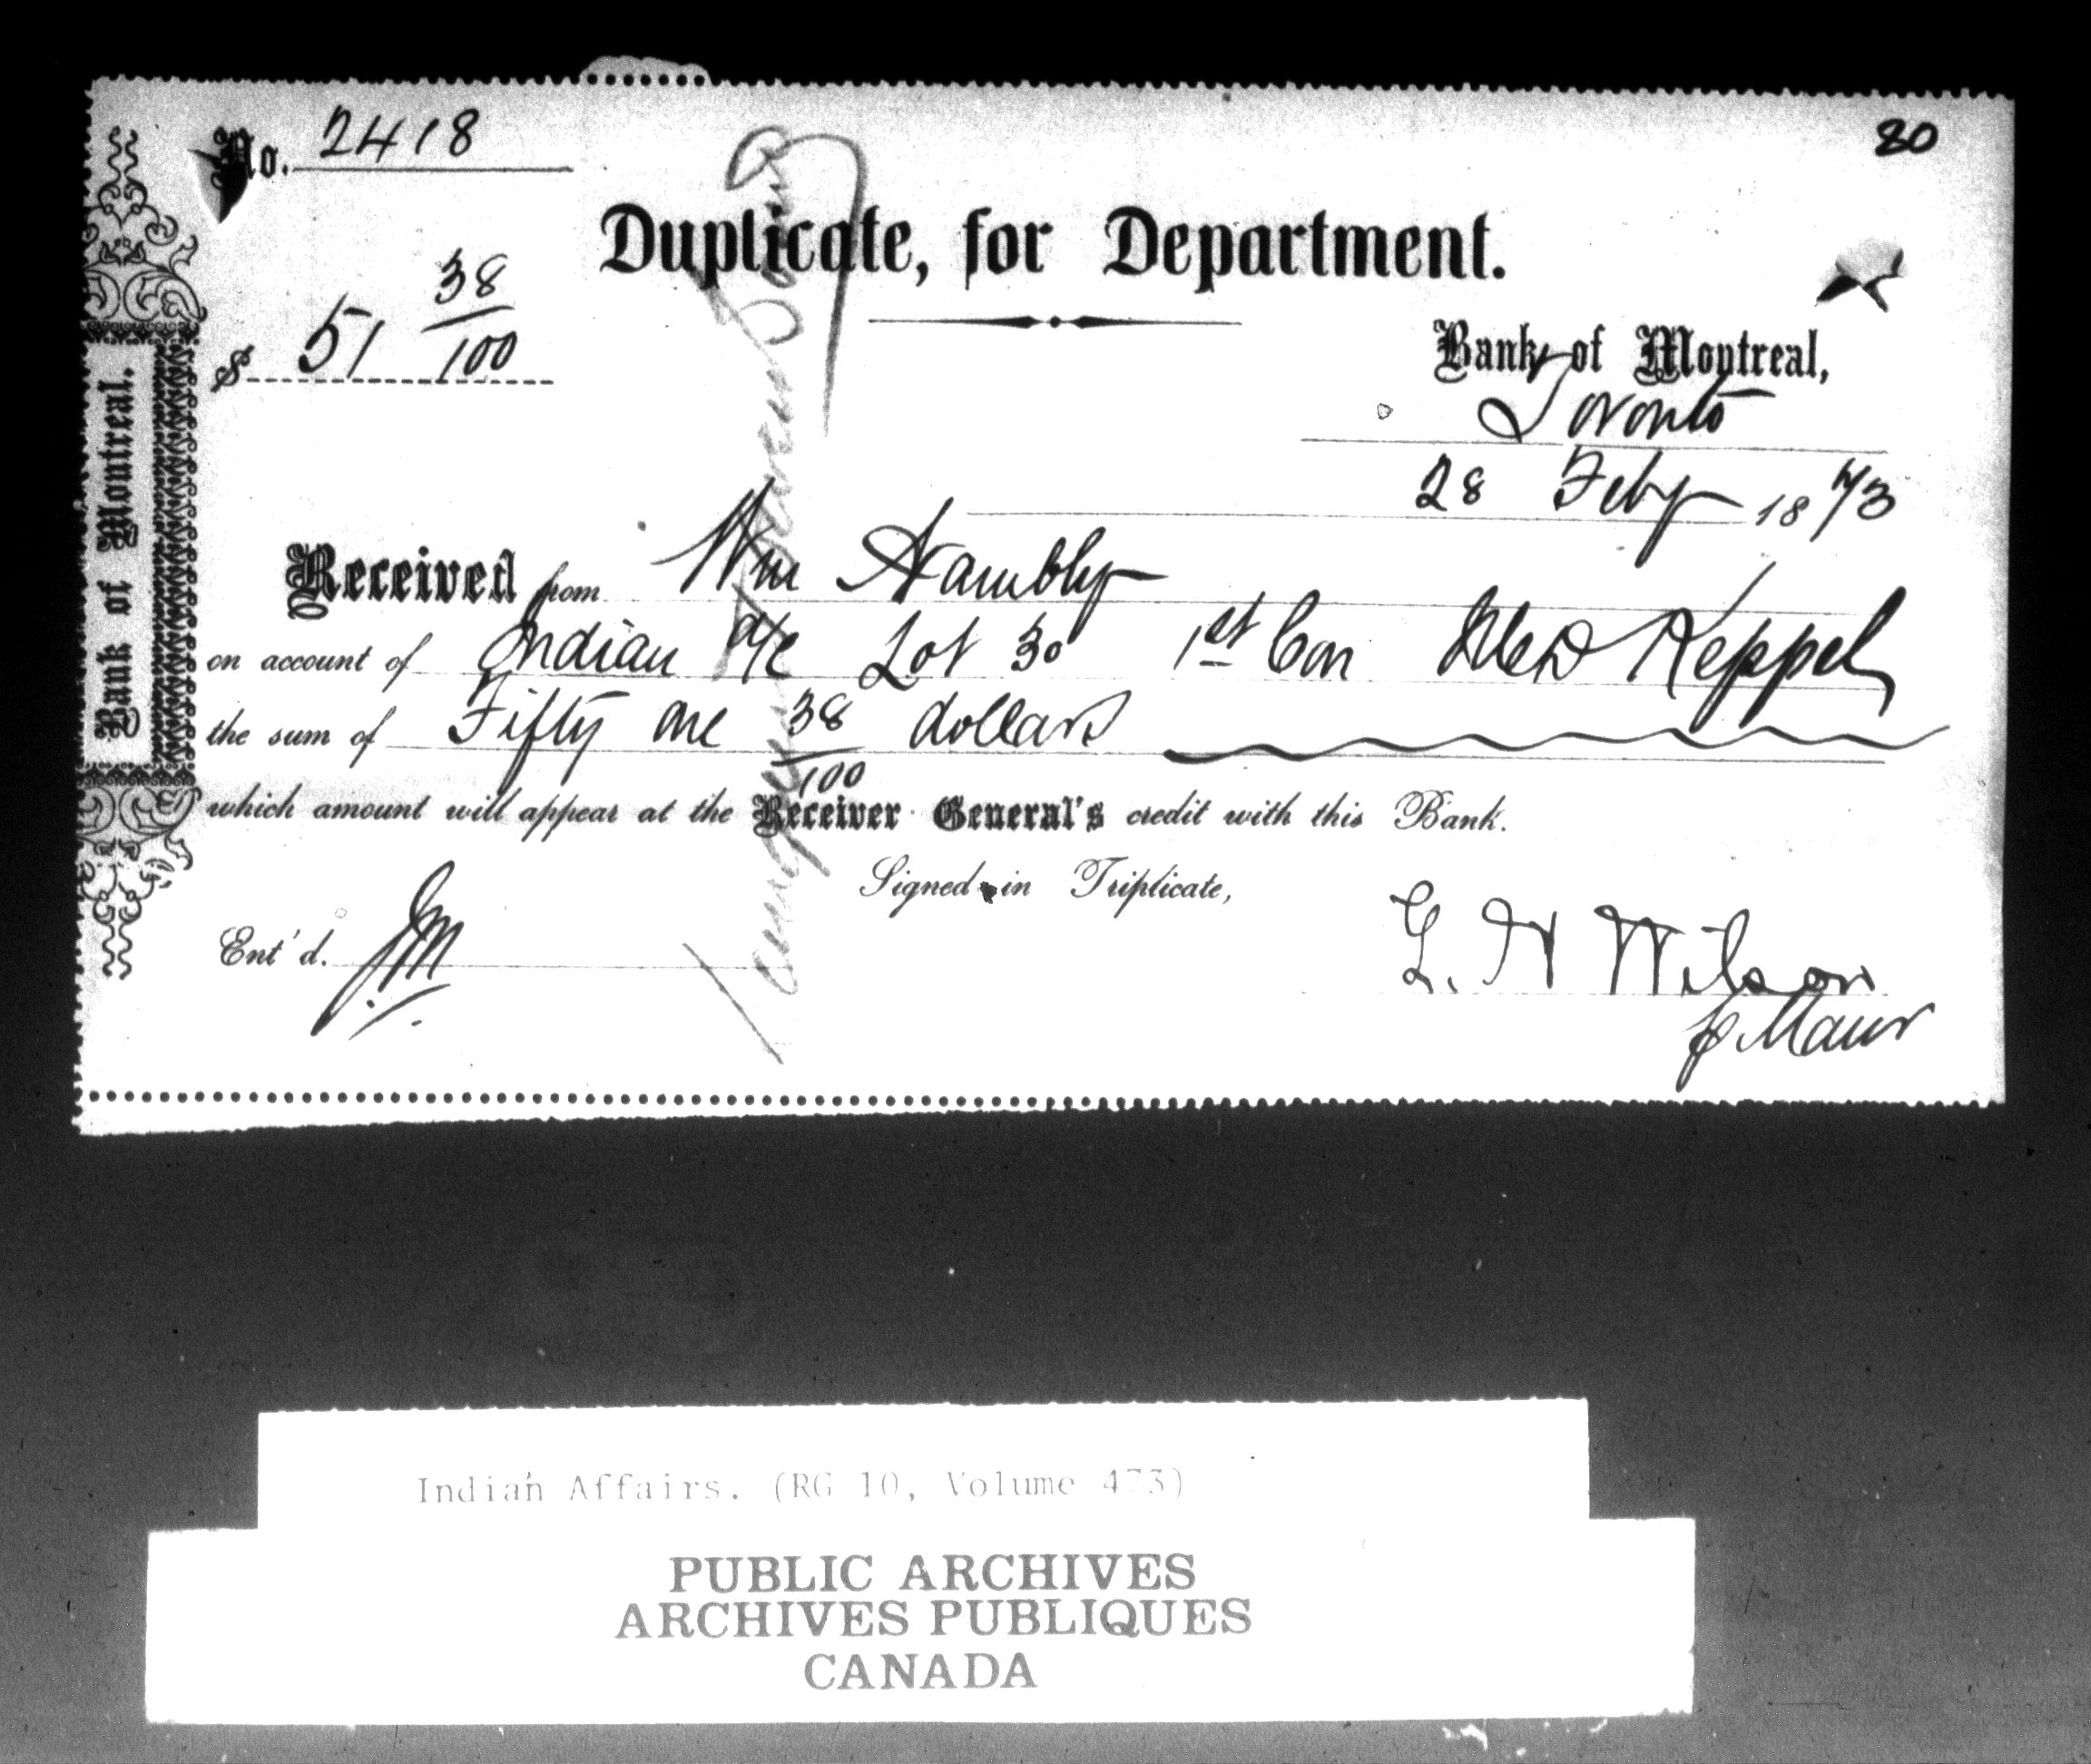 No. 2418
80
Duplicate, for Department.
$ 51 38/100
Bank of Montreal,
Toronto
28 Feby 1873
Bank of Montreal.
Received from Wm Hambly
on account of Indian a/c Lot 30 1st Con Keppel
the sum of Fifty one 38/100 dollars
which amount will appear at the Receiver General's credit with this Bank.
Signed in Triplicate,
Ent'd. JM
G. H Wilson
Indian Affairs. (RG 10, Volume 473)
PUBLIC ARCHIVES
ARCHIVES PUBLIQUES
CANADA